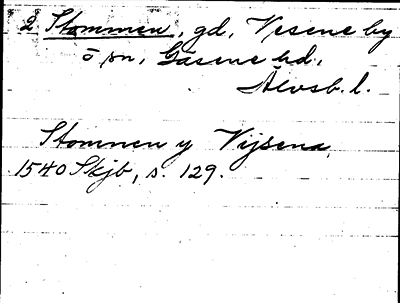 2 Stommen, gd, Vesene by
ö sn, Gäsene hd,
Älvsb. l.
Stommen y Vijsena
1540 Skjb, s. 129.